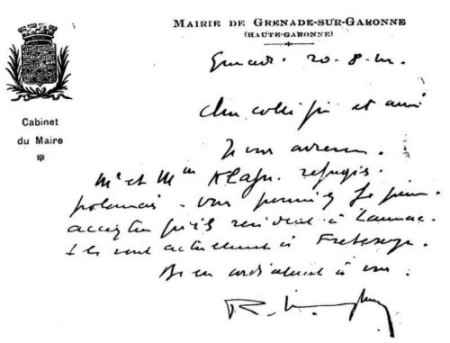 MAIRIE DE GRENADE-SUR-GARONNE
(HAUTE-GARONNE)
Cabinet
du Maire
Grenade. 20. 8.
Cher collègue et ami
Je vous adresse
Mr et Mme refugiés
polonais. vous pouvez
accepter qu'ils resident à Launac.
Ils sont actuellement à
Bien cordialement à vous.